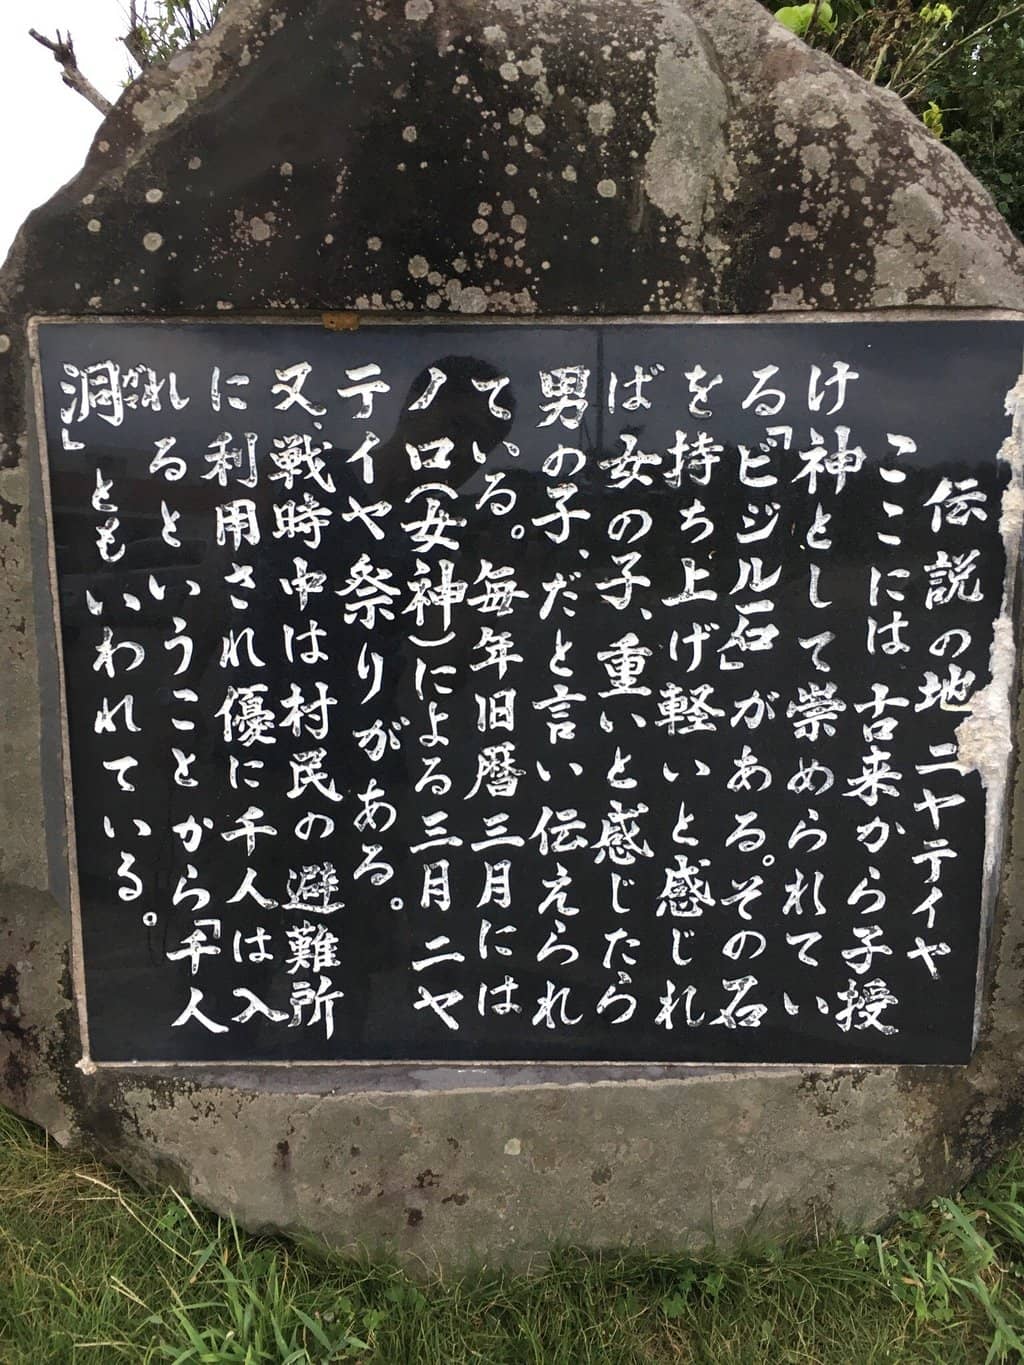 伝説の地ニヤティヤ
ここには古来から子授
け神として崇められてい
る「ビジル石」がある。その石
を持ち上げ軽いと感じれ
ば女の子、重いと感じたら
男の子、だと言い伝えられ
ている。毎年旧暦三月には
ノロ(女神)による三月ニヤ
テイヤ祭りがある。
又、戦時中は村民の避難所
に利用され優に千人は入
れるということから「千人
洞」ガマともいわれている。